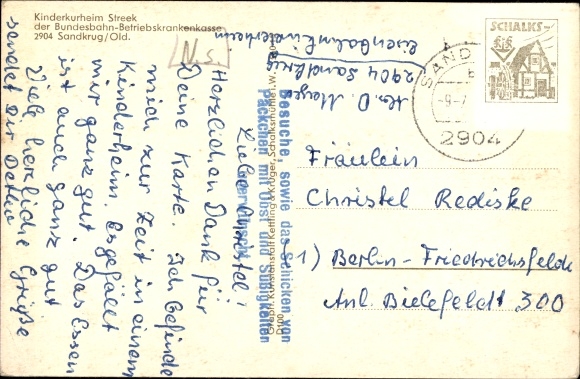 Kinderkurheim Streek
der Bundesbahn-Betriebskrankenkasse
2904 Sandkrug/Old.
N.S.
D. Meyer
2904 Sandkrug
Eisenbahnkinderheim
Liebe Christel!
Herzlichen Dank für
Deine Karte. Ich befinde
mich zur Zeit in einem
Kinderheim. Es gefällt
mir ganz gut. Das Essen
ist auch ganz gut
Viele herzliche Grüße
sendet Dir
Besuche, sowie das Schicken von
Päckchen mit Obst und Süßigkeiten
unerwünscht
SCHALKS
SAND
2904
Fräulein
Christel Rediske
1) Berlin-Friedrichsfelde
Anl. Bielefeldt 300